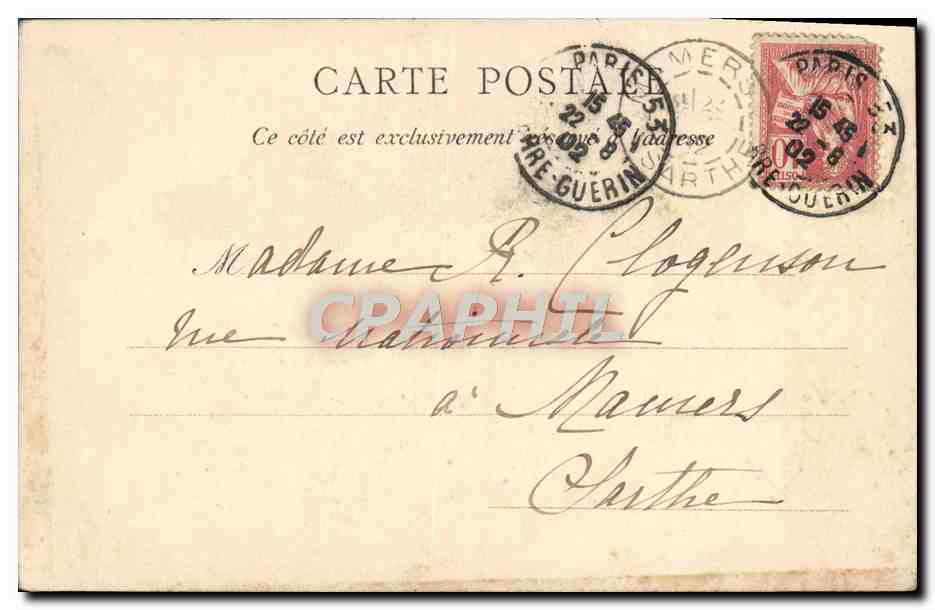 CARTE POSTALE
Ce côté est exclusivement réservé à l'adresse
PARIS 53
15 45
22 - 8
02
RRE-GUERIN
MERS
SARTHE
PARIS 53
15 45
22 - 8
02
RRE-GUERIN
10
Madame R. Clogenson
rue
CPRAPHIL
à Mamers
Sarthe